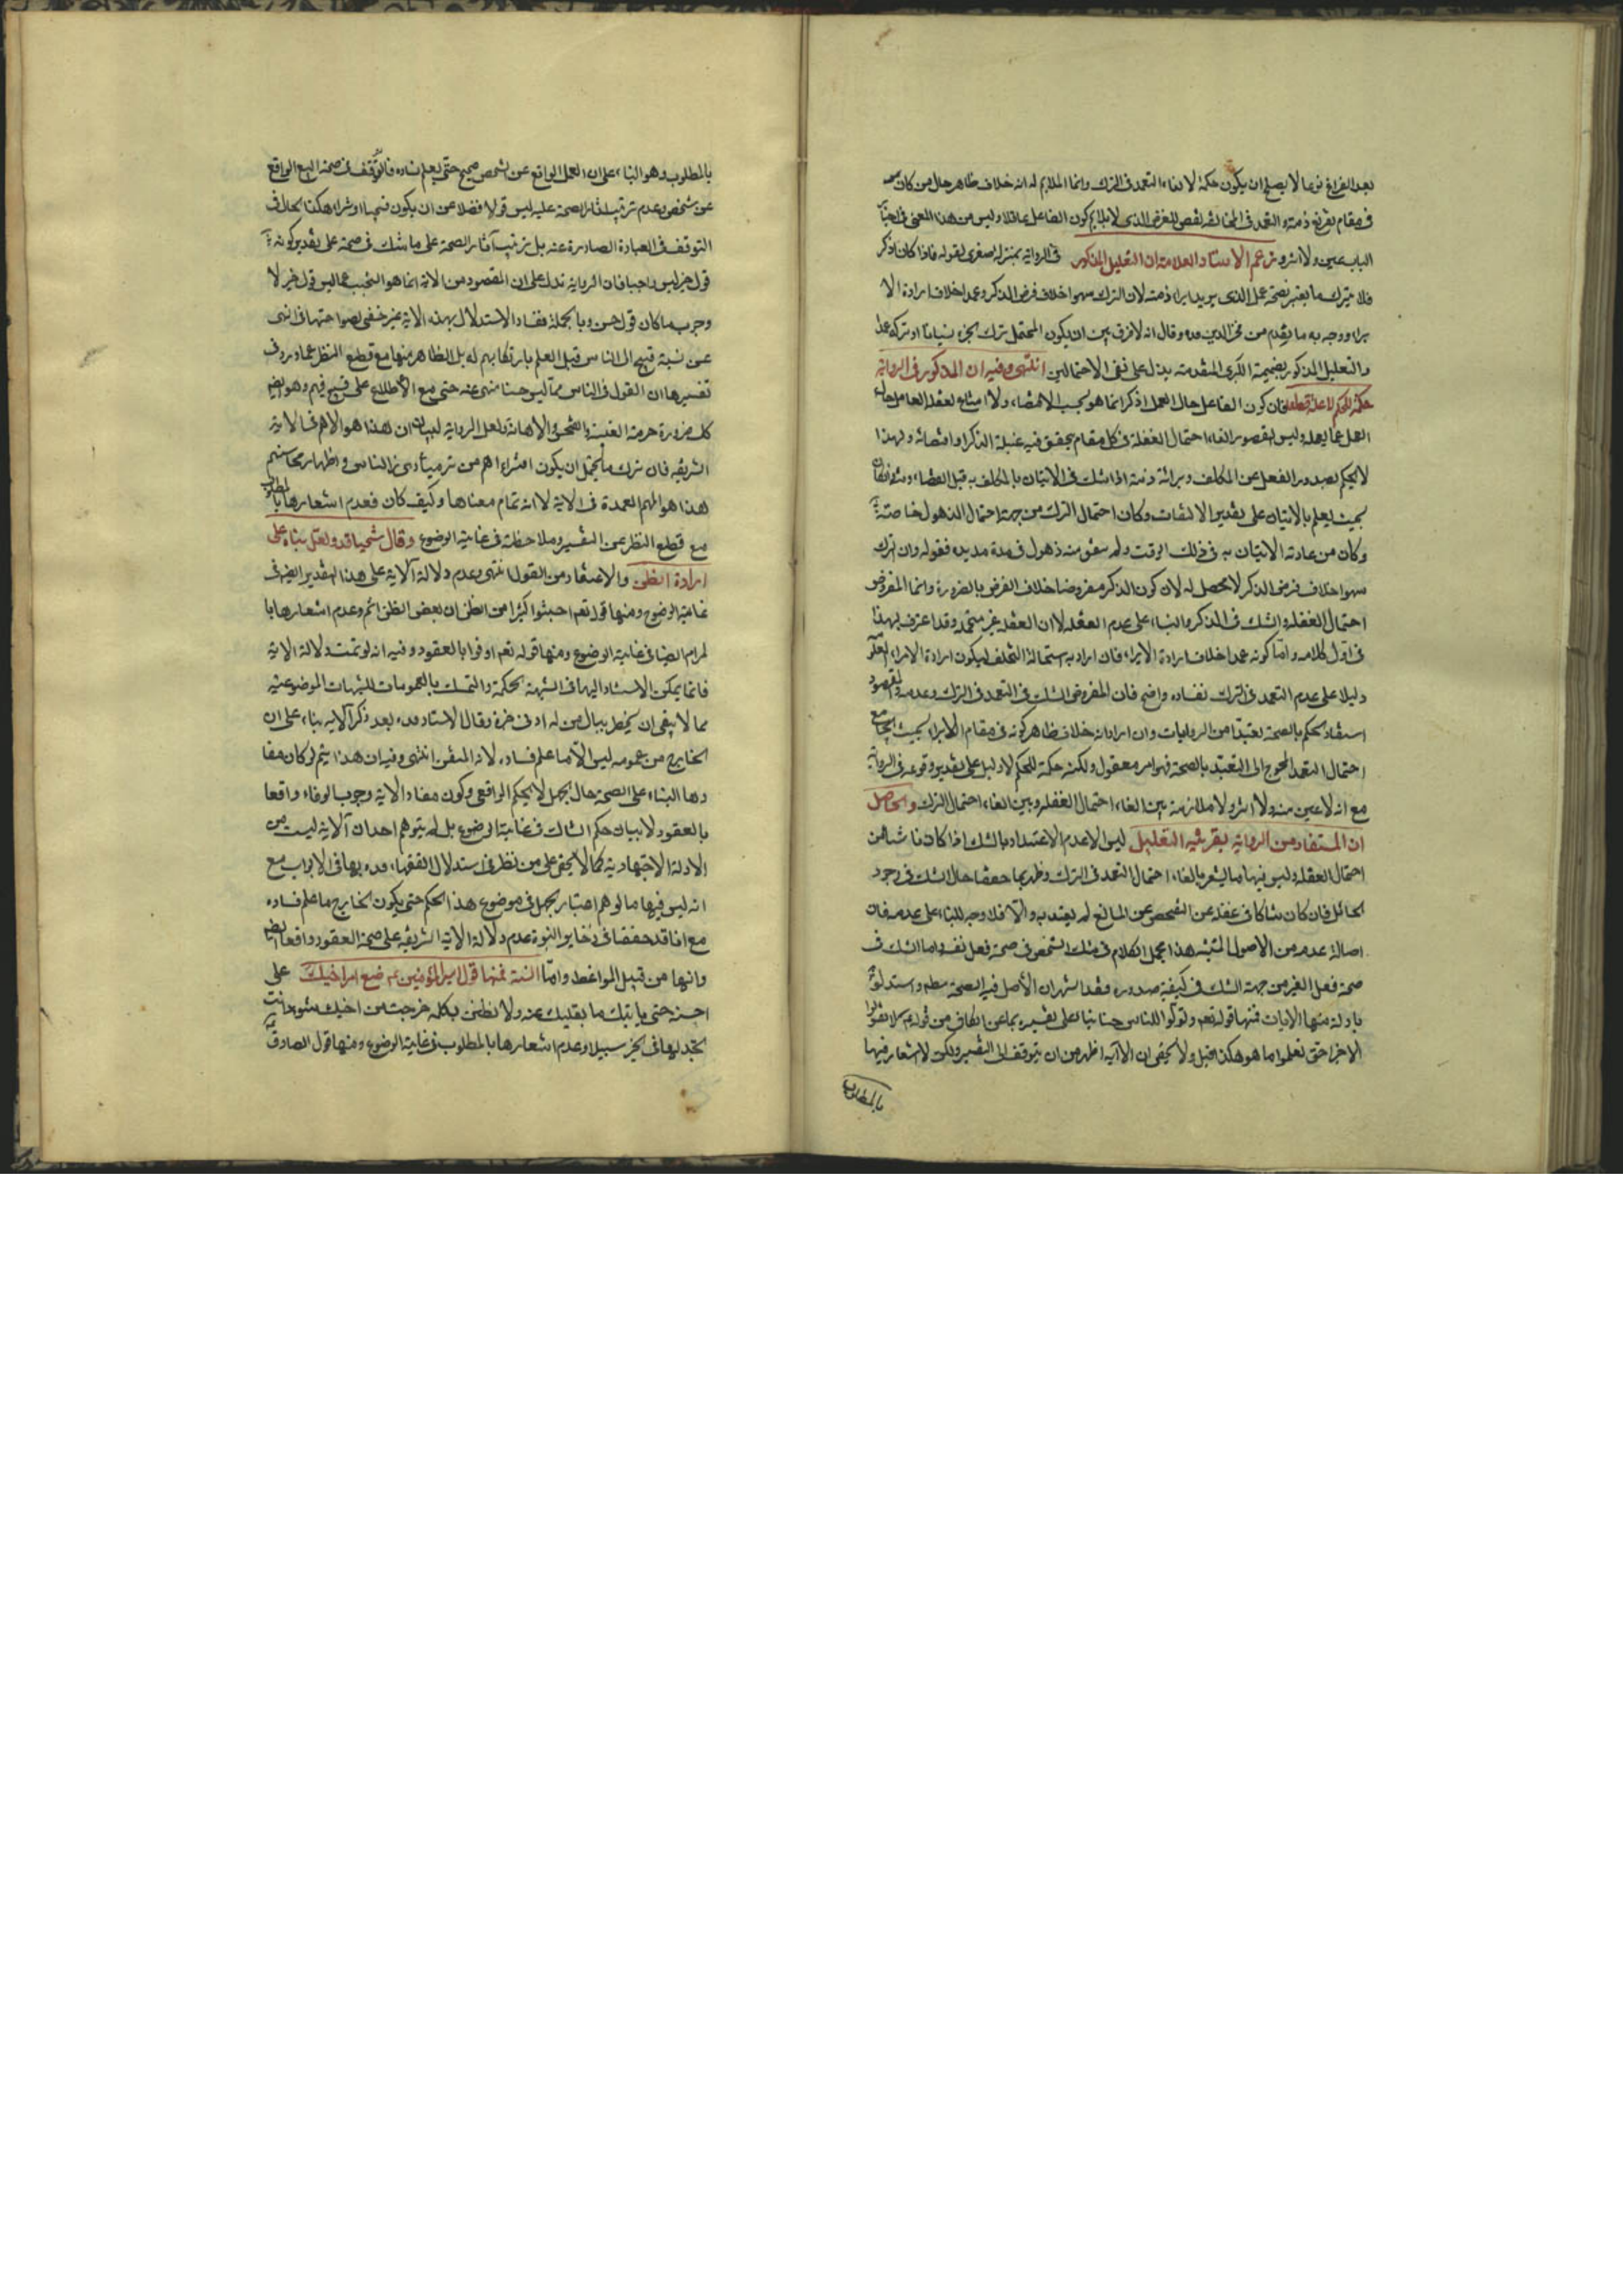 بعد الفراغ نوعا لا يصلح ان يكون حكمة لالغاء التعمد فى الترك وانما الملايم له انه خلاف ظاهر حال من كان
فى مقام تفريغ ذمته والتعمد فى المخالفة لنقص للغرض الذى لا يلايم كون الفاعل عاقلا وليس من هذا المعنى فى اخبار
الباب عين ولا اثر وزعم الاستاد العلامة ان التعليل المذكور فى الرواية بمنزلة صغرى لقوله فاذا كان اذكر
فلا يترك ما يعتبر فى صحة عمل الذى يريد ابراء ذمته لان الترك سهوا خلاف فرض الذكر وعمدا خلاف ارادة الا
براء ووجه به ما تقدم من فخر الدين قده وقال انه لا فرق بين ان يكون المحتمل ترك الجزء نسيانا او تركه عمدا
والتعليل المذكور بضميمة الكبرى المتقدمة يدل على نفى الاحتمالين انتهى وفيه ان المذكور فى الرواية
حكمة للحكم لا علة قطعا فان كون الفاعل حال العمل اذكر انما هو بحسب الاقتضاء ولا امتناع لغفلة العامل حال
العمل عما يعمله وليس المقصود الغاء احتمال الغفلة فى كل مقام يتحقق فيه غلبة الذكر او اقتضائه ولهذا
لا يحكم بصدور الفعل عن المكلف وبرائة ذمته اذا شك فى الاتيان بالمكلف به قبل القضاء
بحيث يعلم بالاتيان على تقدير الالتفات وكان احتمال الترك من جهة احتمال الذهول خاصة
وكان من عادته الاتيان به فى ذلك الوقت ولم يتفق منه ذهول فى مدة مديدة فقوله وان الترك
سهوا خلاف فرض الذكر لا محصل له لان كون الذكر مفروضا خلاف الفرض بالضرورة وانما المفروض
احتمال الغفلة والشك فى الذكر والبناء على عدم الغفلة لا ان الغفلة غير متحمله وقد اعترف بهذا
فى اول كلامه واما كونه عمدا خلاف ارادة الابراء فان اراد به استحالة التخلف ليكون ارادة الابراء
دليلا على عدم التعمد فى الترك ففساده واضح فان المفروض الشك فى التعمد فى الترك وعدمه والمقصود
استفادة الحكم بالصحة تعبدا من الروايات وان اراد انه خلاف ظاهر كونه فى مقام الابراء بحيث يجامع
احتمال التعمد المحوج الى التعبد بالصحة فهو امر معقول ولكنه حكمة للحكم لا دليل على تقدير وقوعه فى الرواية
مع انه لا عين منه ولا اثر ولا ملازمة بين الغاء احتمال الغفلة وبين الغاء احتمال الترك والحاصل
ان المستفاد من الرواية بقرينة التعليل ليس الا عدم الاعتداد بالشك اذا كان ناشئا من
احتمال الغفلة وليس فيها ما يشعر بالغاء احتمال التعمد فى الترك وظهر بما حققنا حال الشك فى وجود
الحائل فان كان شاكا فى غفلة عن الفحص عن المانع لم يعتد به والا فلا وجه للبناء على عدمه فان
اصالة عدمه من الاصول المثبتة هذا مجمل الكلام فى شك الشخص فى صحة فعل نفسه واما الشك فى
صحة فعل الغير من جهة الشك فى كيفية صدوره فقد اشتهر ان الاصل فيه الصحة مطلقا واستدلوا
بادلة منها الايات فمنها قوله تعم وقولوا للناس حسنا بناء على تفسيره بما عن الكافى من قوله ع لا تقولوا
الا خيرا حتى تعلموا ما هو هكذا قيل ولا يخفى ان الآية اظهر من ان يتوقف الى التفسير ولكن لا اشعار فيها
بالمطلوب
بالمطلوب وهو البناء على ان العمل الواقع عن شخص صحيح حتى يعلم فساده فالتوقف فى صحة البيع الواقع
عن شخص وعدم ترتيب اثار الصحة عليه ليس قولا فضلا عن ان يكون قبيحا او شرا وهكذا الحال فى
التوقف فى العبادة الصادرة عنه بل ترتيب آثار الصحة على ما شك فى صحة على تقدير كونه
قول خير ليس واجبا فان الرواية تدل على ان المقصود من الاية انما هو التجنب عما ليس قول خير لا
وجوب ما كان قول حسن وبالجملة ففساد الاستدلال بهذه الاية غير خفى لصراحتها فى النهى
عن نسبة قبيح الى الناس قبل العلم بارتكابهم له بل الظاهر منها مع قطع النظر عما ورد فى
تفسيرها ان القول فى الناس مما ليس حسنا منهى عنه حتى مع الاطلاع على قبيح فيهم وهو ايضا
كك ضرورة حرمة الغيبة والفحش والاهانة ولعل الرواية لبيان ان هذا هو الاهم فى الاية
الشريفة فان ترك ما يحتمل ان يكون افتراء اهم من ترك مساوى الناس واظهار محاسنهم
لهذا هو المهم العمدة فى الاية لا انه تمام معناها وكيف كان فعدم اشعارها بالمطلوب
مع قطع النظر عن التفسير وملاحظته فى غاية الوضوح وقال شيخنا قده ولعل بناءه على
ارادة الظن والاعتقاد من القول انتهى وعدم دلالة الاية على هذا التقدير ايضا فى
غاية الوضوح ومنها قوله تعم اجتنبوا كثيرا من الظن ان بعض الظن اثم وعدم اشعارها با
لمرام ايضا فى غاية الوضوح ومنها قوله تعم اوفوا بالعقود وفيه انه لو تمت دلالة الاية
فانما يمكن الاستناد اليها فى الشبهة الحكمية والتمسك بالعمومات للشبهات الموضوعية
مما لا ينبغى ان يخطر ببال من له ادنى خبرة وقال الاستاد قده بعد ذكر الاية بناء على ان
الخارج من عمومه ليس الا ما علم فساده لانه المتيقن انتهى وفيه ان هذا يتم لو كان مفا
دها البناء على الصحة حال الجهل لا الحكم الواقعى وكون مفاد الاية وجوب الوفاء واقعا
بالعقود لا بيان حكم الشاك فى غاية الوضوح بل لم يتوهم احد ان الاية ليست من
الادلة الاجتهادية كما لا يخفى على من نظر فى استدلال الفقهاء قده بها فى الابواب مع
انه ليس فيها ما يوهم اعتبار الجهل فى موضوع هذا الحكم حتى يكون الخارج ما علم فساده
مع انا قد حققنا فى ذخاير النبوة عدم دلالة الاية الشريفة على صحة العقود واقعا ايضا
وانها من قبيل المواعظ واما السنة فمنها قول امير المؤمنين ع ضع امر اخيك على
احسنه حتى ياتيك ما يقلبك عنه ولا تظنن بكلمة خرجت من اخيك سوءا وانت
تجد لها فى الخير سبيلا وعدم اشعارها بالمطلوب فى غاية الوضوح ومنها قول الصادق